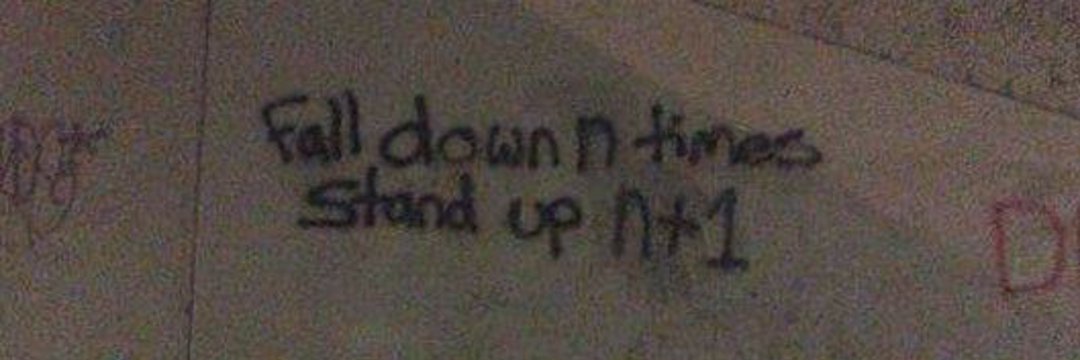 Fall down n times
Stand up n+1
D